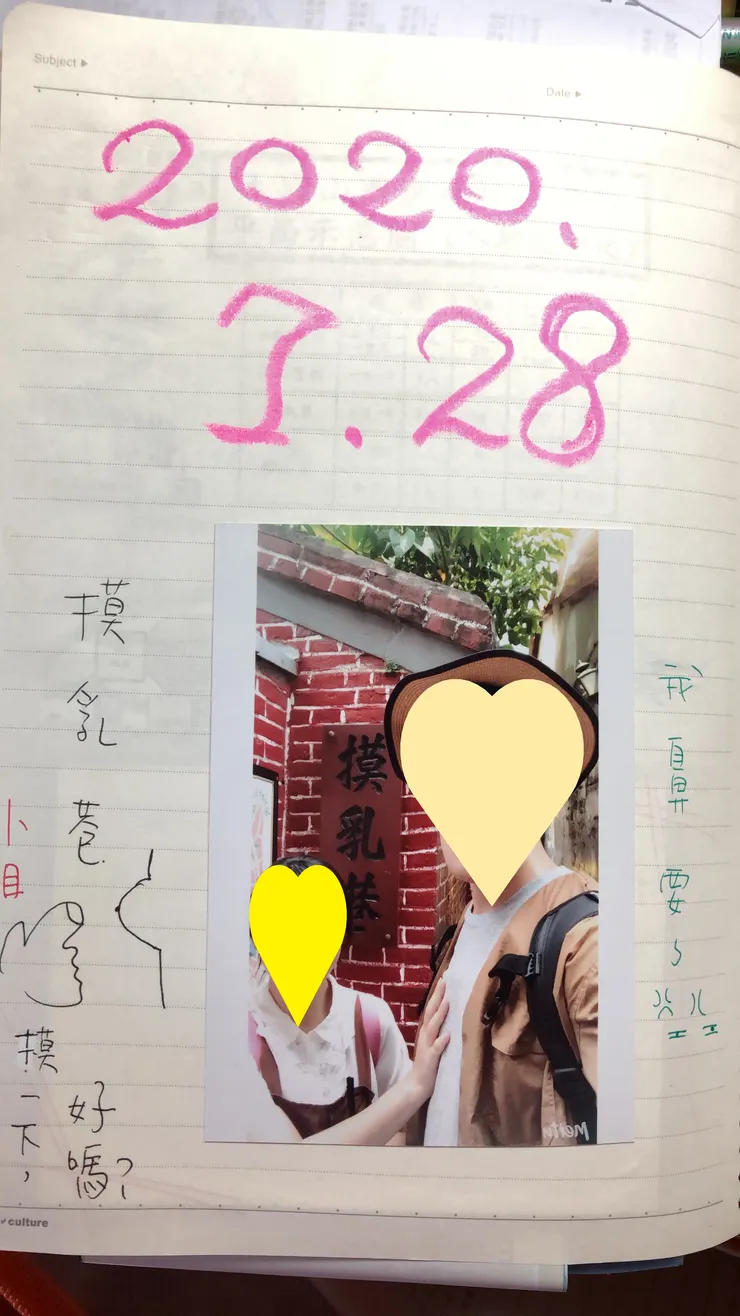 Subject
Date
2020.
7.28
摸乳巷
摸一下,
好嗎?
摸乳巷
Meitu
我鼻要
culture